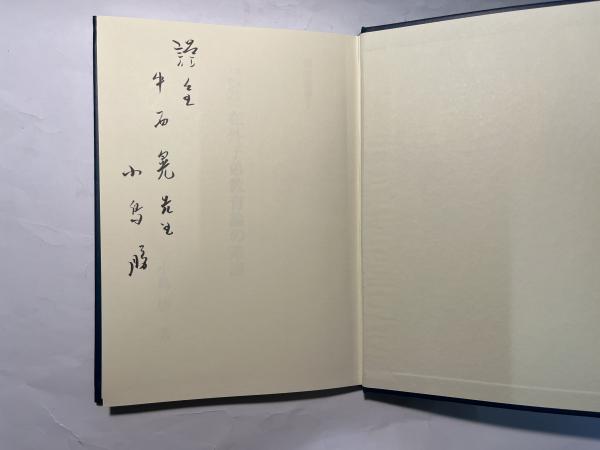 謹呈
中西晃先生
小島勝